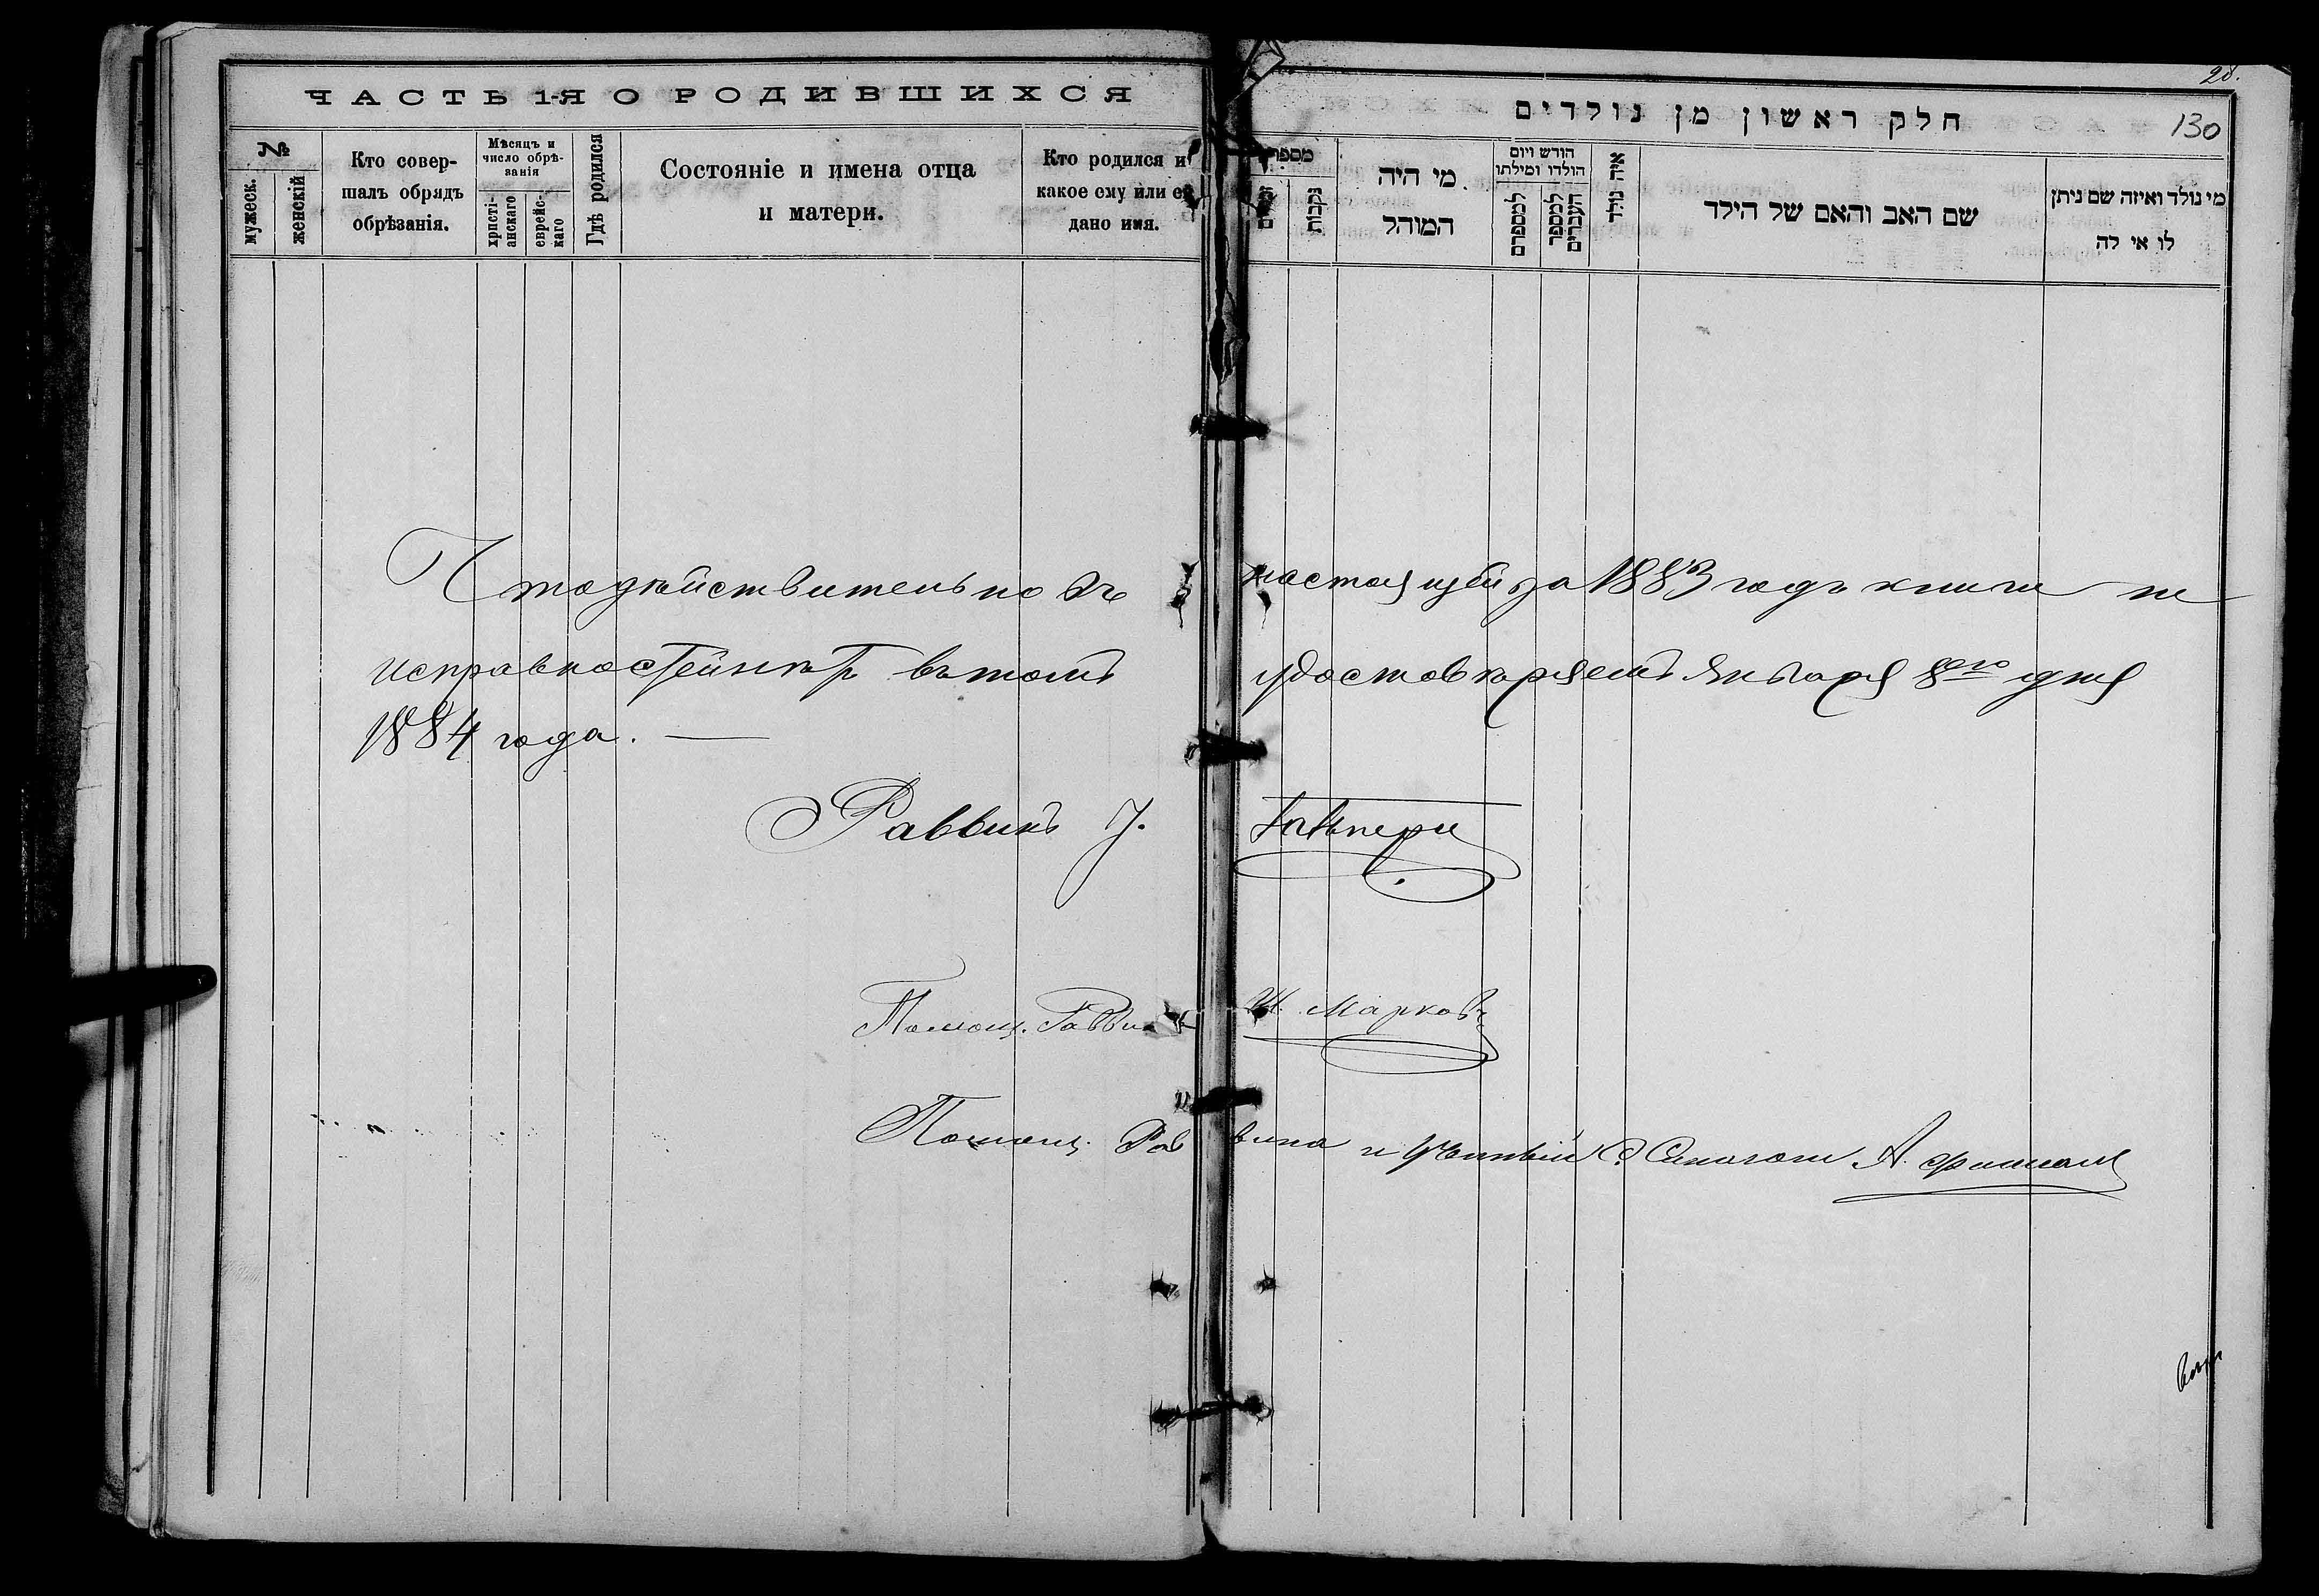 ЧАСТЬ 1-Я О РОДИВШИХСЯ
№
мужеск.
женскій
Кто совер-
шалъ обрядъ
обрѣзанія.
Мѣсяцъ и
число обрѣ-
занія
христі-
анскаго
еврейс-
каго
Гдѣ родился
Состояніе и имена отца
и матери.
Кто родился и
какое ему или ей
дано имя.
28.
130
חלק ראשון מן נולדים
מספר
נקבות
מי היה
המוהל
חודש ויום
הולדו ומילתו
למספרם
למספר
העברים
איה נולד
שם האב והאם של הילד
מי נולד ואיזה שם ניתן
לו אי לה
Что дѣйствительно въ настоящей за 1883 годъ книги не
исправностей нѣтъ въ томъ удостовѣряемъ Января 8го дня
1884 года. —
Раввинъ I. Гальперн
Помощ. Раввина Ш. Марковъ
Помощ. Раввина и Ученый С. Синагоги А. Фишман